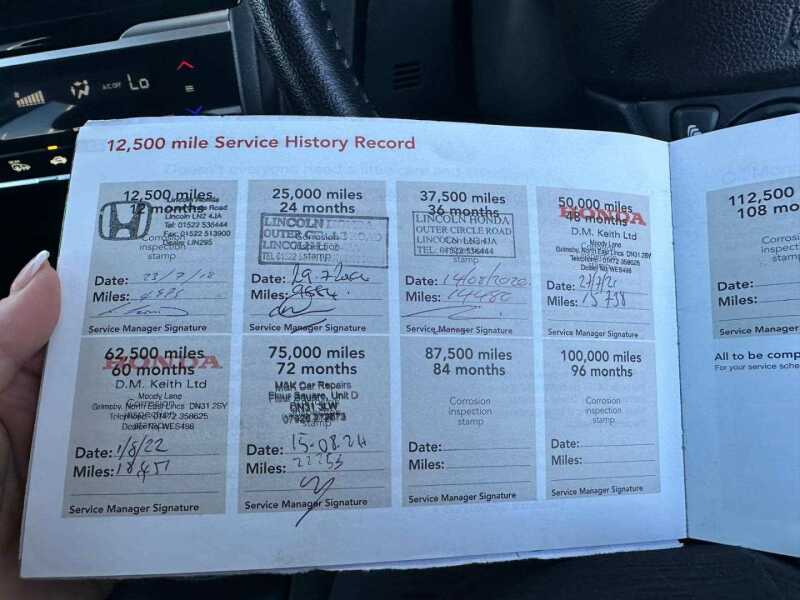 A/C OFF Lo
12,500 mile Service History Record
12,500 miles
12 months
Lincoln Honda
Lincoln LN2 4JA
Tel: 01522 536444
Fax: 01522 513900
Dealer LIN295
Corrosion
inspection
stamp
Date: 23/7/18
Miles:
Service Manager Signature
25,000 miles
24 months
LINCOLN
OUTER
LINCOLN
TEL
stamp
Date:
Miles:
Service Manager Signature
37,500 miles
36 months
LINCOLN HONDA
OUTER CIRCLE ROAD
LINCOLN LN2 4JA
TEL. 01522 536444
Date: 14/08/2020
Miles: 14480
Service Manager Signature
50,000 miles
48 months
HONDA
D. M. Keith Ltd
Moody Lane
Grimsby, North East Lincs DN31 2SY
Telephone: 01472 358625
Dealer No WES486
Date: 27/7/21
Miles: 15738
Service Manager Signature
62,500 miles
60 months
HONDA
D. M. Keith Ltd
Moody Lane
Grimsby, North East Lincs DN31 2SY
Telephone: 01472 358625
Dealer No WES486
Date: 1/8/22
Miles: 18,451
Service Manager Signature
75,000 miles
72 months
M&K Car Repairs
Flour Square, Unit D
DN31 3LW
Date: 15-08.24
Miles: 22253
Service Manager Signature
87,500 miles
84 months
Corrosion
inspection
stamp
Date:
Miles:
Service Manager Signature
100,000 miles
96 months
Corrosion
inspection
stamp
Date:
Miles:
Service Manager Signature
112,500
108 mo
Corrosion
inspection
stamp
Date:
Miles:
Service Manager
All to be comp
For your service sche